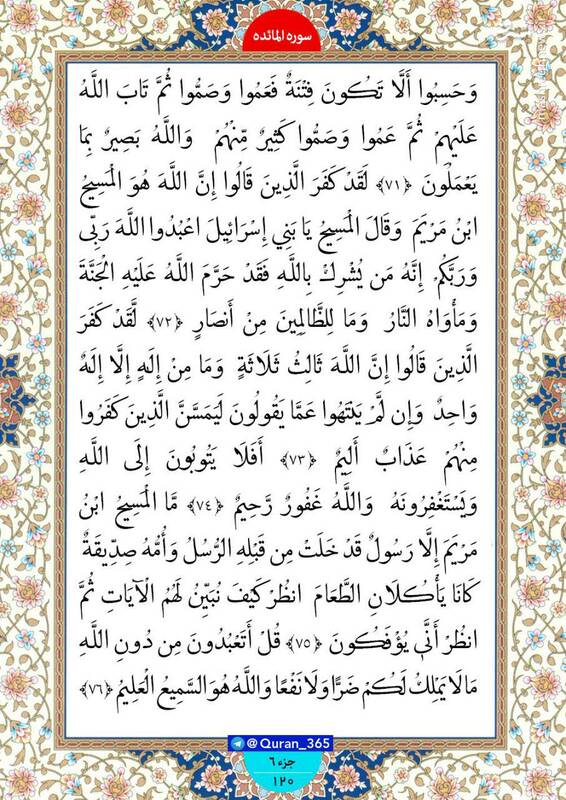 سوره المائده
وَحَسِبُوا أَلَّا تَكُونَ فِتْنَةٌ فَعَمُوا وَصَمُّوا ثُمَّ تَابَ اللَّهُ
عَلَيْهِمْ ثُمَّ عَمُوا وَصَمُّوا كَثِيرٌ مِّنْهُمْ وَاللَّهُ بَصِيرٌ بِمَا
يَعْمَلُونَ ﴿٧١﴾ لَقَدْ كَفَرَ الَّذِينَ قَالُوا إِنَّ اللَّهَ هُوَ الْمَسِيحُ
ابْنُ مَرْيَمَ وَقَالَ الْمَسِيحُ يَا بَنِي إِسْرَائِيلَ اعْبُدُوا اللَّهَ رَبِّي
وَرَبَّكُمْ إِنَّهُ مَن يُشْرِكْ بِاللَّهِ فَقَدْ حَرَّمَ اللَّهُ عَلَيْهِ الْجَنَّةَ
وَمَأْوَاهُ النَّارُ وَمَا لِلظَّالِمِينَ مِنْ أَنصَارٍ ﴿٧٢﴾ لَّقَدْ كَفَرَ
الَّذِينَ قَالُوا إِنَّ اللَّهَ ثَالِثُ ثَلَاثَةٍ وَمَا مِنْ إِلَهٍ إِلَّا إِلَهٌ
وَاحِدٌ وَإِن لَّمْ يَنتَهُوا عَمَّا يَقُولُونَ لَيَمَسَّنَّ الَّذِينَ كَفَرُوا
مِنْهُمْ عَذَابٌ أَلِيمٌ ﴿٧٣﴾ أَفَلَا يَتُوبُونَ إِلَى اللَّهِ
وَيَسْتَغْفِرُونَهُ وَاللَّهُ غَفُورٌ رَّحِيمٌ ﴿٧٤﴾ مَّا الْمَسِيحُ ابْنُ
مَرْيَمَ إِلَّا رَسُولٌ قَدْ خَلَتْ مِن قَبْلِهِ الرُّسُلُ وَأُمُّهُ صِدِّيقَةٌ
كَانَا يَأْكُلَانِ الطَّعَامَ انظُرْ كَيْفَ نُبَيِّنُ لَهُمُ الْآيَاتِ ثُمَّ
انظُرْ أَنَّى يُؤْفَكُونَ ﴿٧٥﴾ قُلْ أَتَعْبُدُونَ مِن دُونِ اللَّهِ
مَا لَا يَمْلِكُ لَكُمْ ضَرًّا وَلَا نَفْعًا وَاللَّهُ هُوَ السَّمِيعُ الْعَلِيمُ ﴿٧٦﴾
@Quran_365
جزء ٦
١٢٠